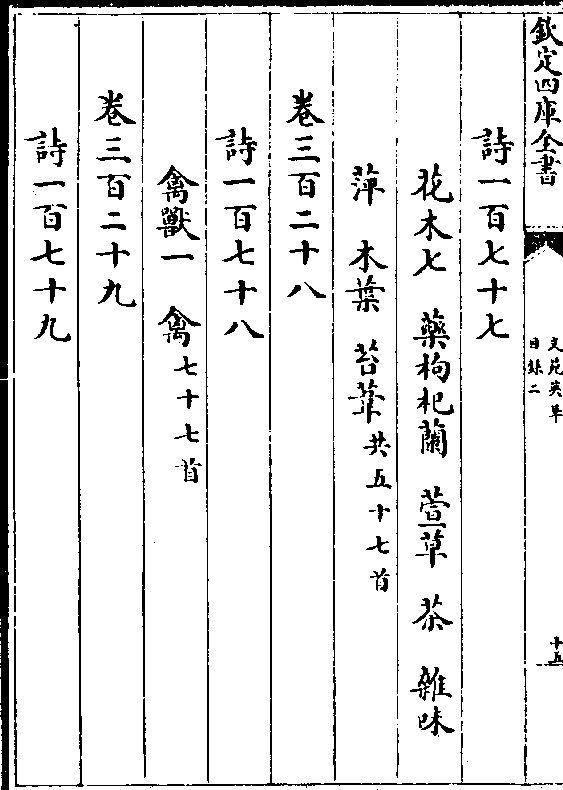 欽定四庫全書
文苑英華
目録二
十五
詩一百七十七
花木七 藥 枸杞 蘭 萱草 茶 雜味
萍 木葉 苔 葦共五十七首
卷三百二十八
詩一百七十八
禽獸一 禽七十七首
卷三百二十九
詩一百七十九